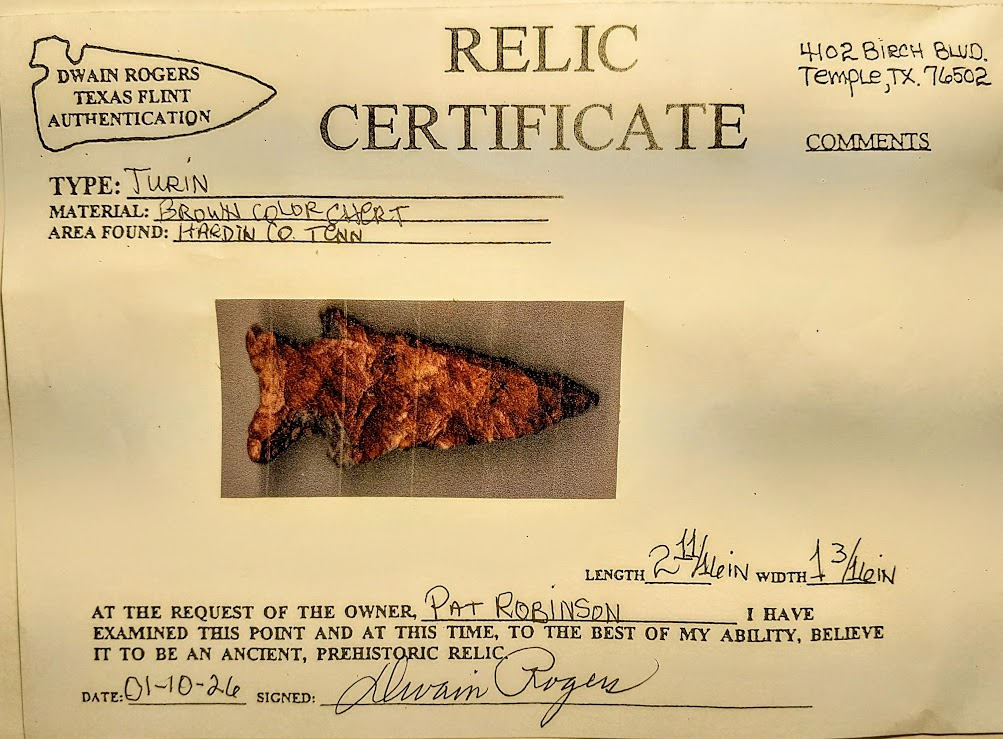 DWAIN ROGERS
TEXAS FLINT
AUTHENTICATION
RELIC
CERTIFICATE
4102 BIRCH BLVD.
Temple, TX. 76502
COMMENTS
TYPE: TURIN
MATERIAL: BROWN COLOR CHERT
AREA FOUND: HARDIN CO. TENN
LENGTH 2 11/16 IN WIDTH 1 3/16 IN
AT THE REQUEST OF THE OWNER, PAT ROBINSON I HAVE
EXAMINED THIS POINT AND AT THIS TIME, TO THE BEST OF MY ABILITY, BELIEVE
IT TO BE AN ANCIENT, PREHISTORIC RELIC.
DATE: 01-10-26 SIGNED: Dwain Rogers